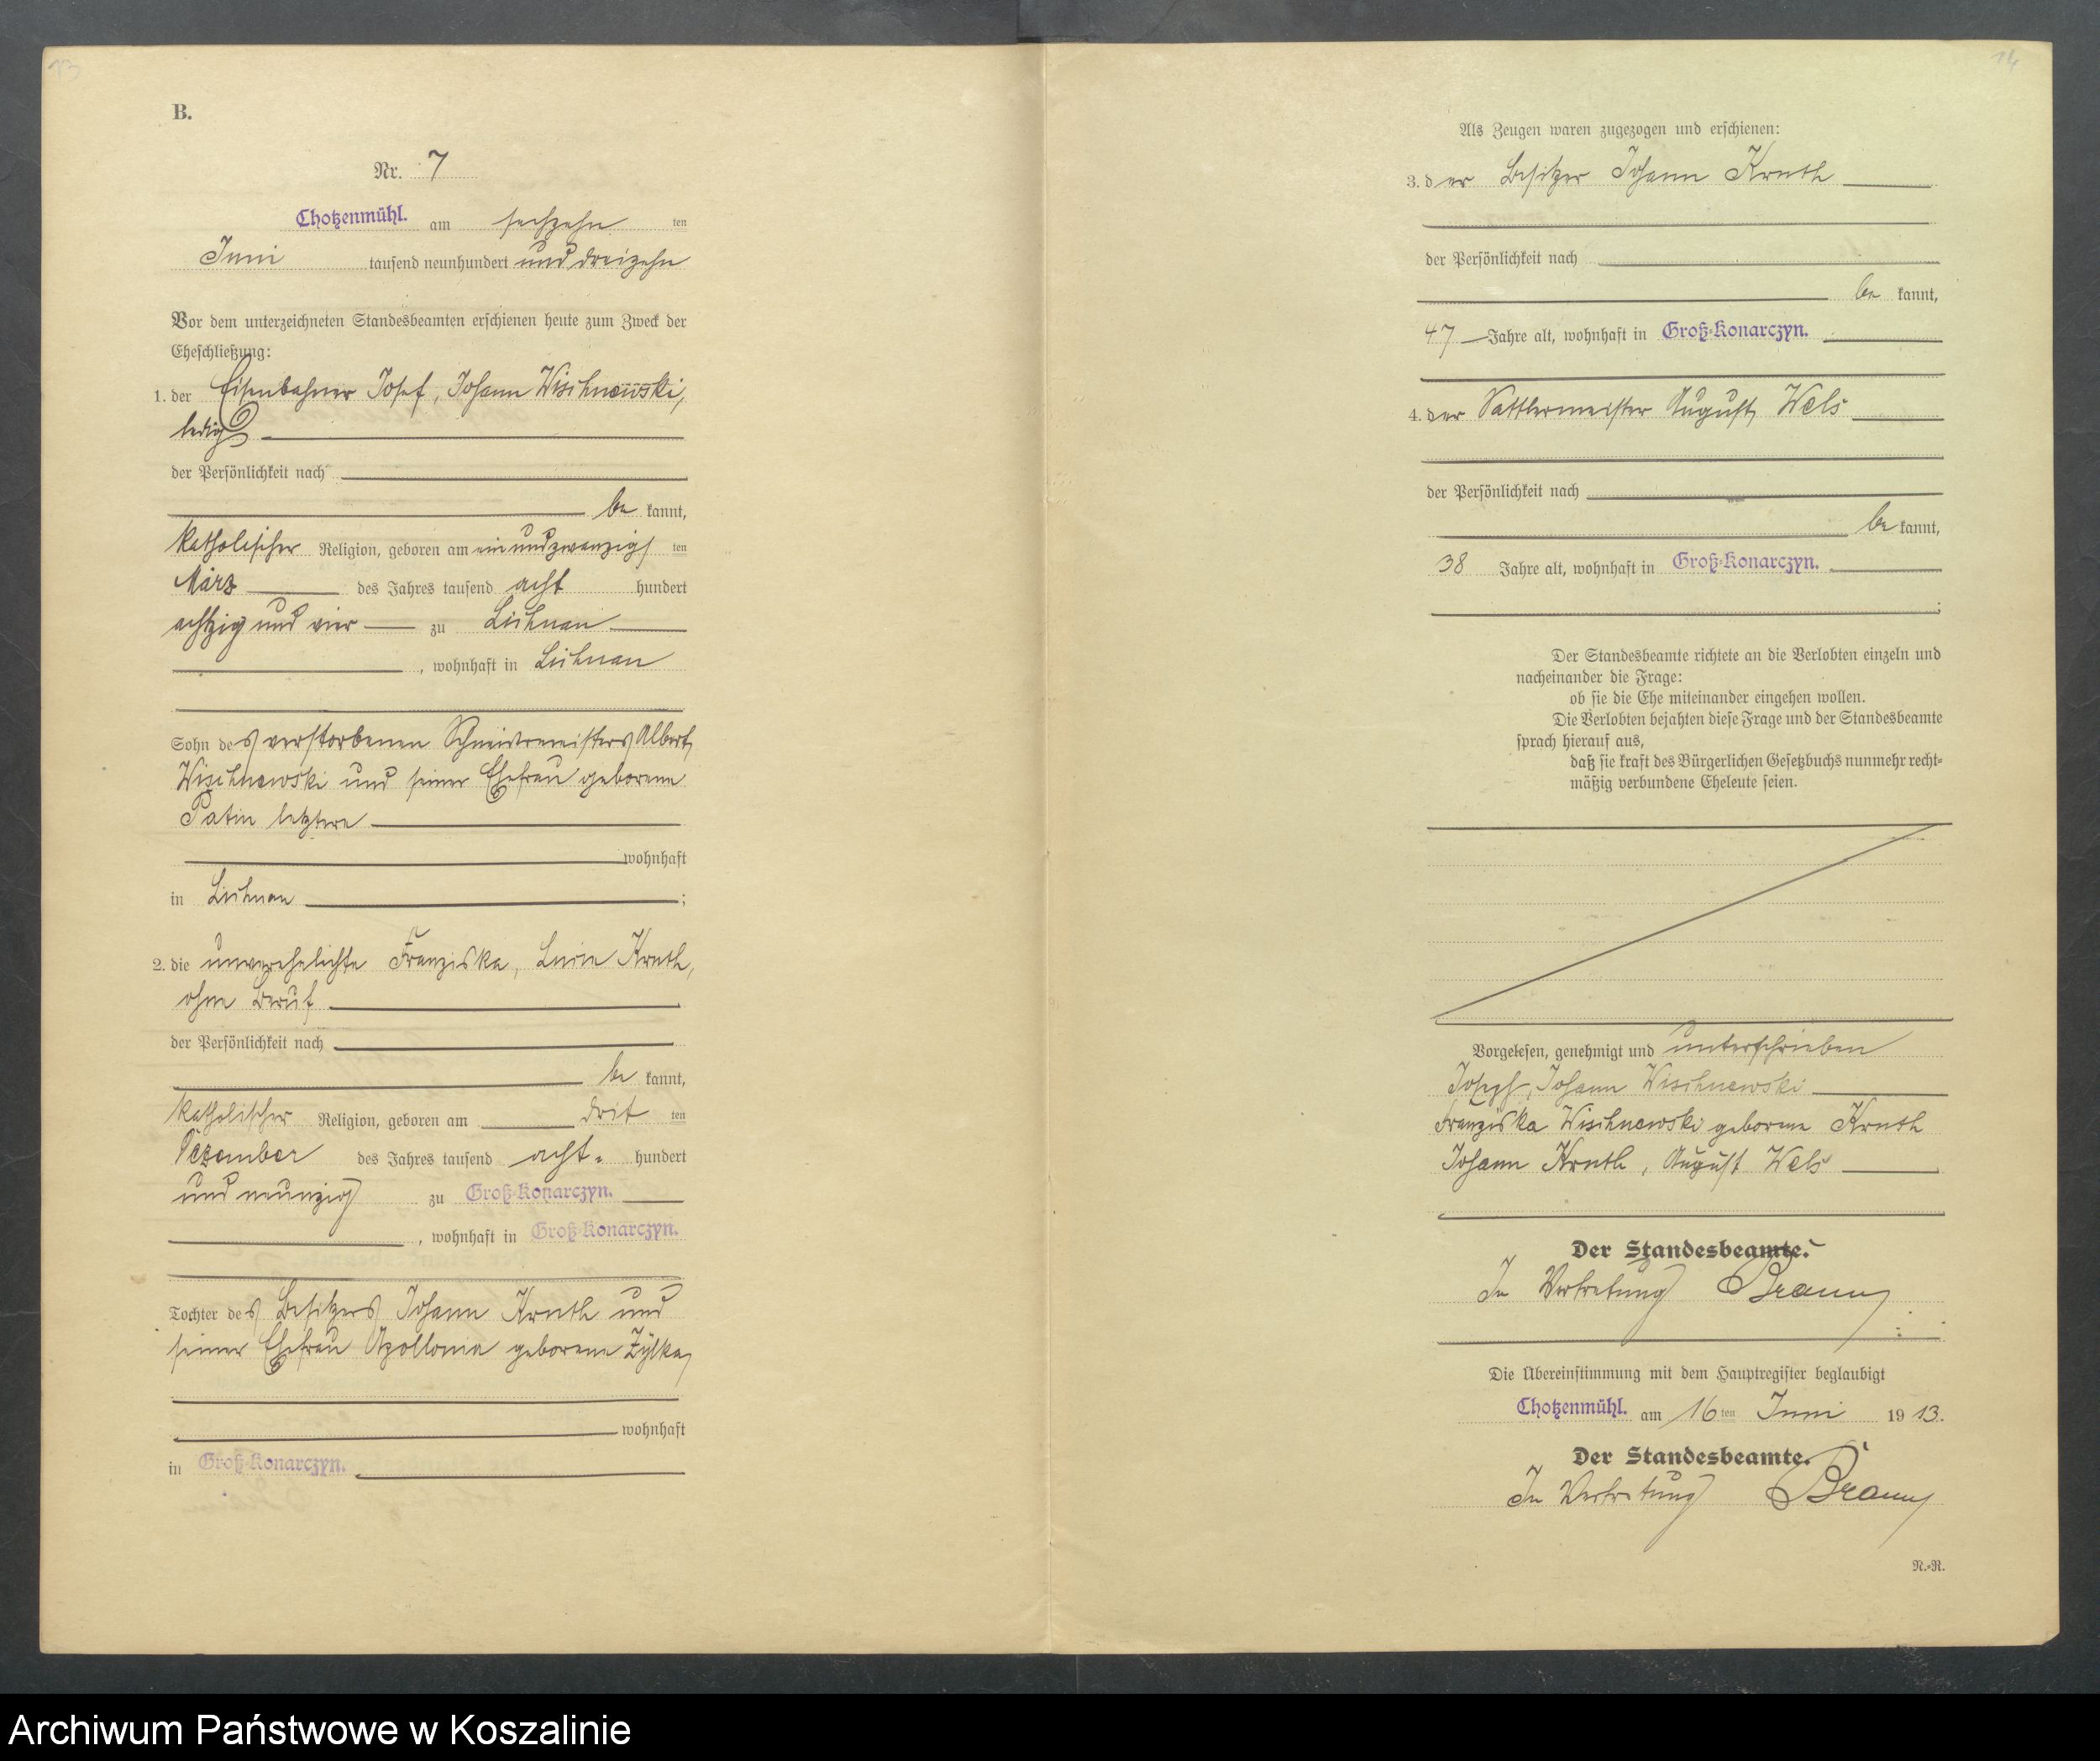 13
B.
Nr. 7
Chotzenmühl. am sechzehn ten
Juni tausend neunhundert und dreizehn
Vor dem unterzeichneten Standesbeamten erschienen heute zum Zweck der
Eheschließung:
1. der Eisenbahner Josef, Johann Wischnewski,
ledig
der Persönlichkeit nach
be kannt,
katholischer Religion, geboren am ein und zwanzigs ten
März des Jahres tausend acht hundert
achtzig und vier zu Lichnau
, wohnhaft in Lichnau
Sohn des verstorbenen Schneidermeisters Albert
Wischnewski und seiner Ehefrau geborene
Patin letztere
wohnhaft
in Lichnau ;
2. die unverehelichte Franziska, Lucie Knuth,
ohne Beruf
der Persönlichkeit nach
be kannt,
katholischer Religion, geboren am drit ten
Dezember des Jahres tausend acht hundert
und neunzig zu Groß-Konarczyn.
, wohnhaft in Groß-Konarczyn.
Tochter des Besitzers Johann Knuth und
seiner Ehefrau Apollonia geborene Zylka,
wohnhaft
in Groß-Konarczyn.
14
Als Zeugen waren zugezogen und erschienen:
3. der Besitzer Johann Knuth
der Persönlichkeit nach
be kannt,
47 Jahre alt, wohnhaft in Groß-Konarczyn.
4. der Sattlermeister August Wels
der Persönlichkeit nach
be kannt,
38 Jahre alt, wohnhaft in Groß-Konarczyn.
;
Der Standesbeamte richtete an die Verlobten einzeln und
nacheinander die Frage:
ob sie die Ehe miteinander eingehen wollen.
Die Verlobten bejahten diese Frage und der Standesbeamte
sprach hierauf aus,
daß sie kraft des Bürgerlichen Gesetzbuchs nunmehr recht-
mäßig verbundene Eheleute seien.
Vorgelesen, genehmigt und unterschrieben
Joseph, Johann Wischnewski
Franziska Wischnewski geborene Knuth
Johann Knuth, August Wels
Der Standesbeamte.
In Vertretung
Die Übereinstimmung mit dem Hauptregister beglaubigt
Chotzenmühl. am 16 ten Juni 1913.
Der Standesbeamte.
In Vertretung
N.-R.
Archiwum Państwowe w Koszalinie